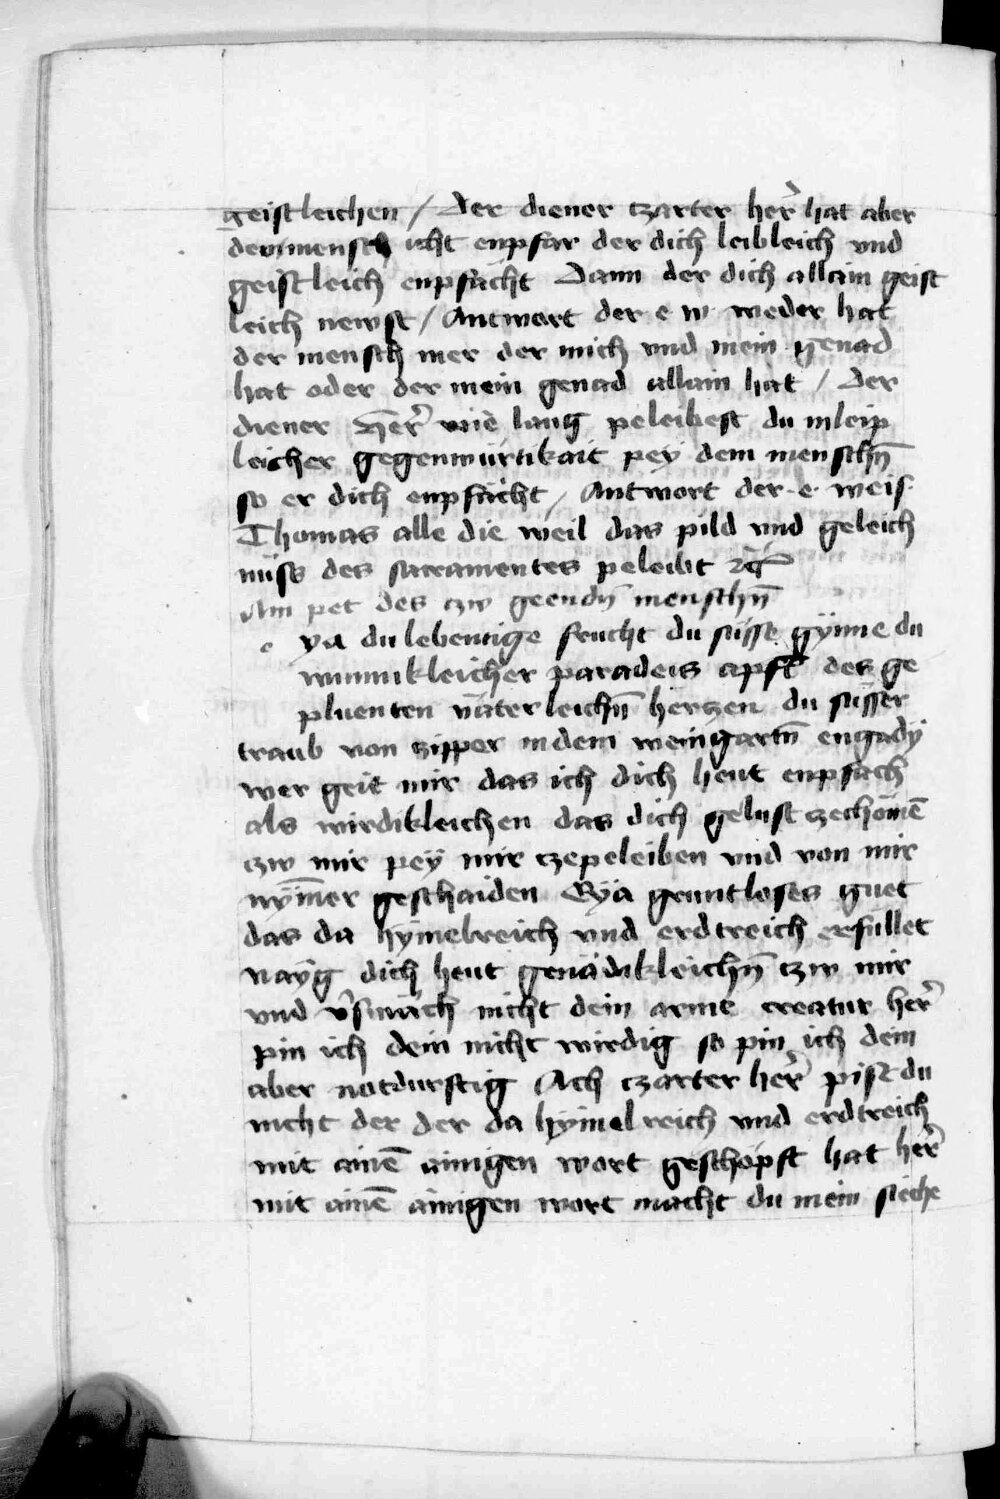 geistleichen / Der diener czarter her̃ hat aber
dermensch icht enpfor der dich leibleich vnd
geistleich enpfächt Dann der dich allain geist
leich newst / Antwort der e w weder hat
der mensch mer der mich vnd mein genad
hat oder der mein genad allain hat / Der
diener Her̃ wie lang peleibest du in leip
leicher gegenwürtikait pey dem menschn̄
so er dich enpfächt / Antwort der · e · weis
Thomas alle die weil das pild vnd geleich
nüss des sacramentes peleibt ꝛc̄
Ain pet des czw geendn̄ menschn̄
e ya du lebentige frucht du süsse gÿmme du
wunnikleicher paradeis apfel des ge
plüenten väterleichn̄ herczen du süsser
traub von zipper in dem weingartn̄ engady
wer geit mir das ich dich heut enpfach
als wirdikleichen das dich gelust zechömē
czw mir peÿ mir czepeleiben vnd von mir
nym̄er geschaiden Eÿa gruntloses guet
das da hÿmelreich vnd erdtreich erfüllet
nayg dich heut genädikleichn̄ czw mir
vnd v̄smäch nicht dein arme creatur her̃
pin ich dein nicht wirdig so pin ich dein
aber notdurftig Ach czarter her̃ pist du
nicht der der da hÿmel reich vnd erdtreich
mit ainē ainigen wort geschöpft hat her̃
mit ainē ainigen wort macht du mein sieche